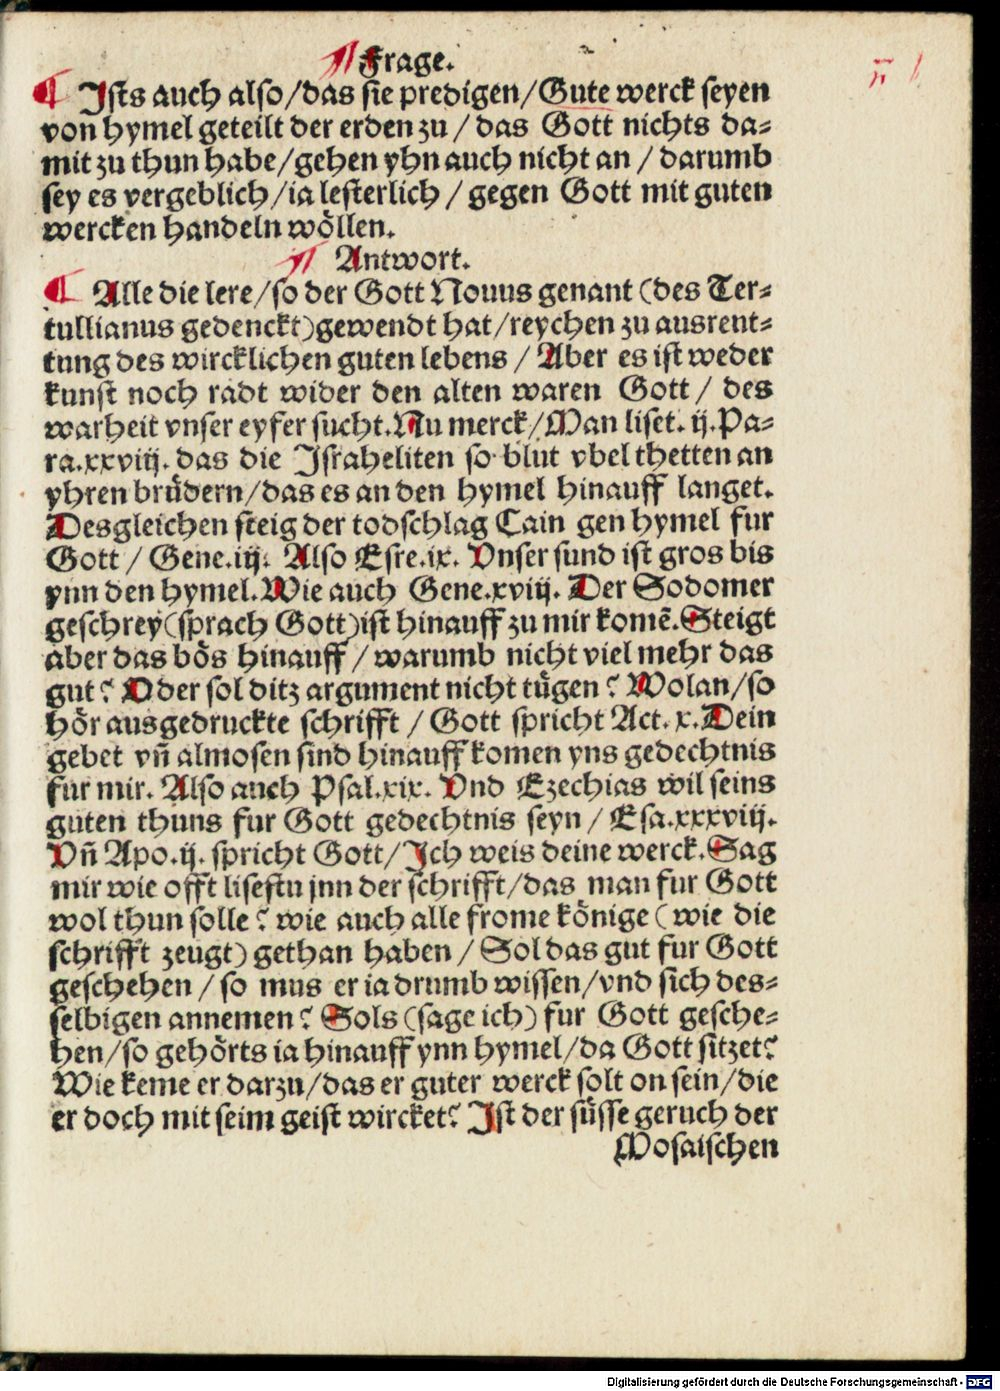 ¶ Frage.
¶ Ists auch also/das sie predigen/Gute werck seyen
von hymel geteilt der erden zu / das Gott nichts da-
mit zu thun habe/gehen yhn auch nicht an / darumb
sey es vergeblich/ia lesterlich / gegen Gott mit guten
wercken handeln wöllen.
¶ Antwort.
¶ Alle die lere/so der Gott Nouus genant (des Ter-
tullianus gedenckt)gewendt hat/reychen zu ausrent-
tung des wircklichen guten lebens / Aber es ist weder
kunst noch radt wider den alten waren Gott / des
warheit vnser eyfer sucht. Nu merck/Man liset. ij. Pa-
ra.xxviij. das die Israheliten so blut vbel thetten an
yhren brüdern/das es an den hymel hinauff langet.
Desgleichen steig der todschlag Cain gen hymel fur
Gott / Gene.iiij. Also Esre.ix. Vnser sund ist gros bis
ynn den hymel. Wie auch Gene.xviij. Der Sodomer
geschrey(sprach Gott)ist hinauff zu mir komē. Steigt
aber das bös hinauff / warumb nicht viel mehr das
gut? Oder sol ditz argument nicht tügen? Wolan/so
hör ausgedruckte schrifft / Gott spricht Act. x. Dein
gebet vñ almosen sind hinauff komen yns gedechtnis
fur mir. Also auch Psal.xix. Vnd Ezechias wil seins
guten thuns fur Gott gedechtnis seyn / Esa.xxxviij.
Vñ Apo.ij. spricht Gott/Ich weis deine werck. Sag
mir wie offt lisestu jnn der schrifft/das man fur Gott
wol thun solle? wie auch alle frome könige ( wie die
schrifft zeugt) gethan haben / Sol das gut fur Gott
geschehen / so mus er ia drumb wissen/vnd sich des-
selbigen annemen? Sols (sage ich) fur Gott gesche-
hen/so gehörts ia hinauff ynn hymel/da Gott sitzet?
Wie keme er darzu/das er guter werck solt on sein/die
er doch mit seim geist wircket? Ist der süsse geruch der
Mosaischen
Digitalisierung gefördert durch die Deutsche Forschungsgemeinschaft - DFG